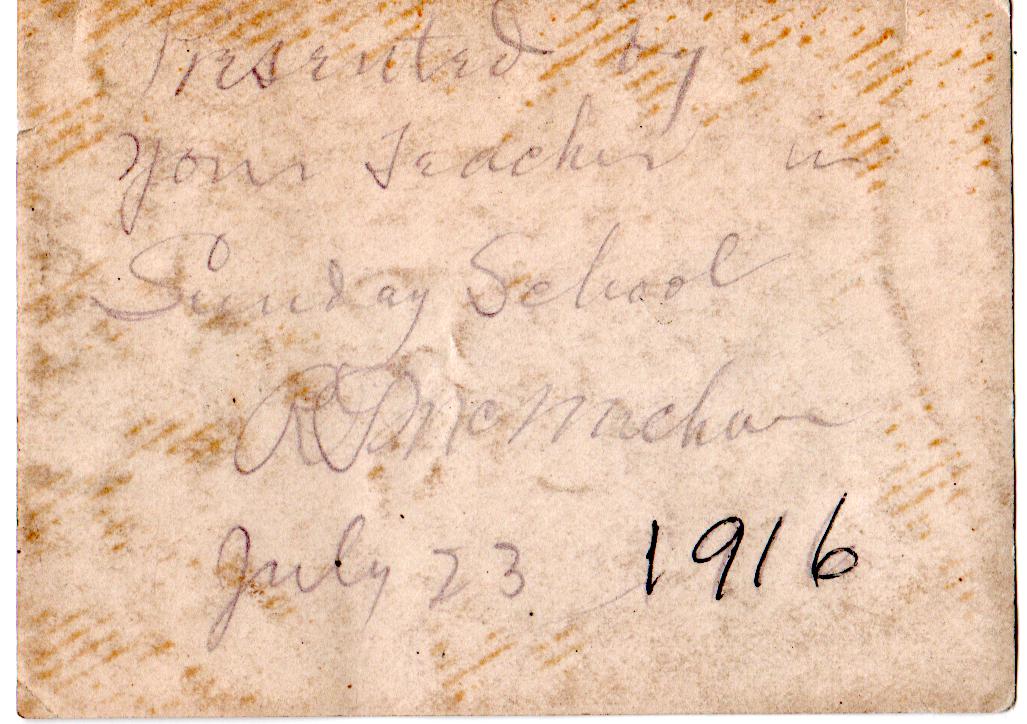 Presented by
Your Teacher in
Sunday School
July 23 1916